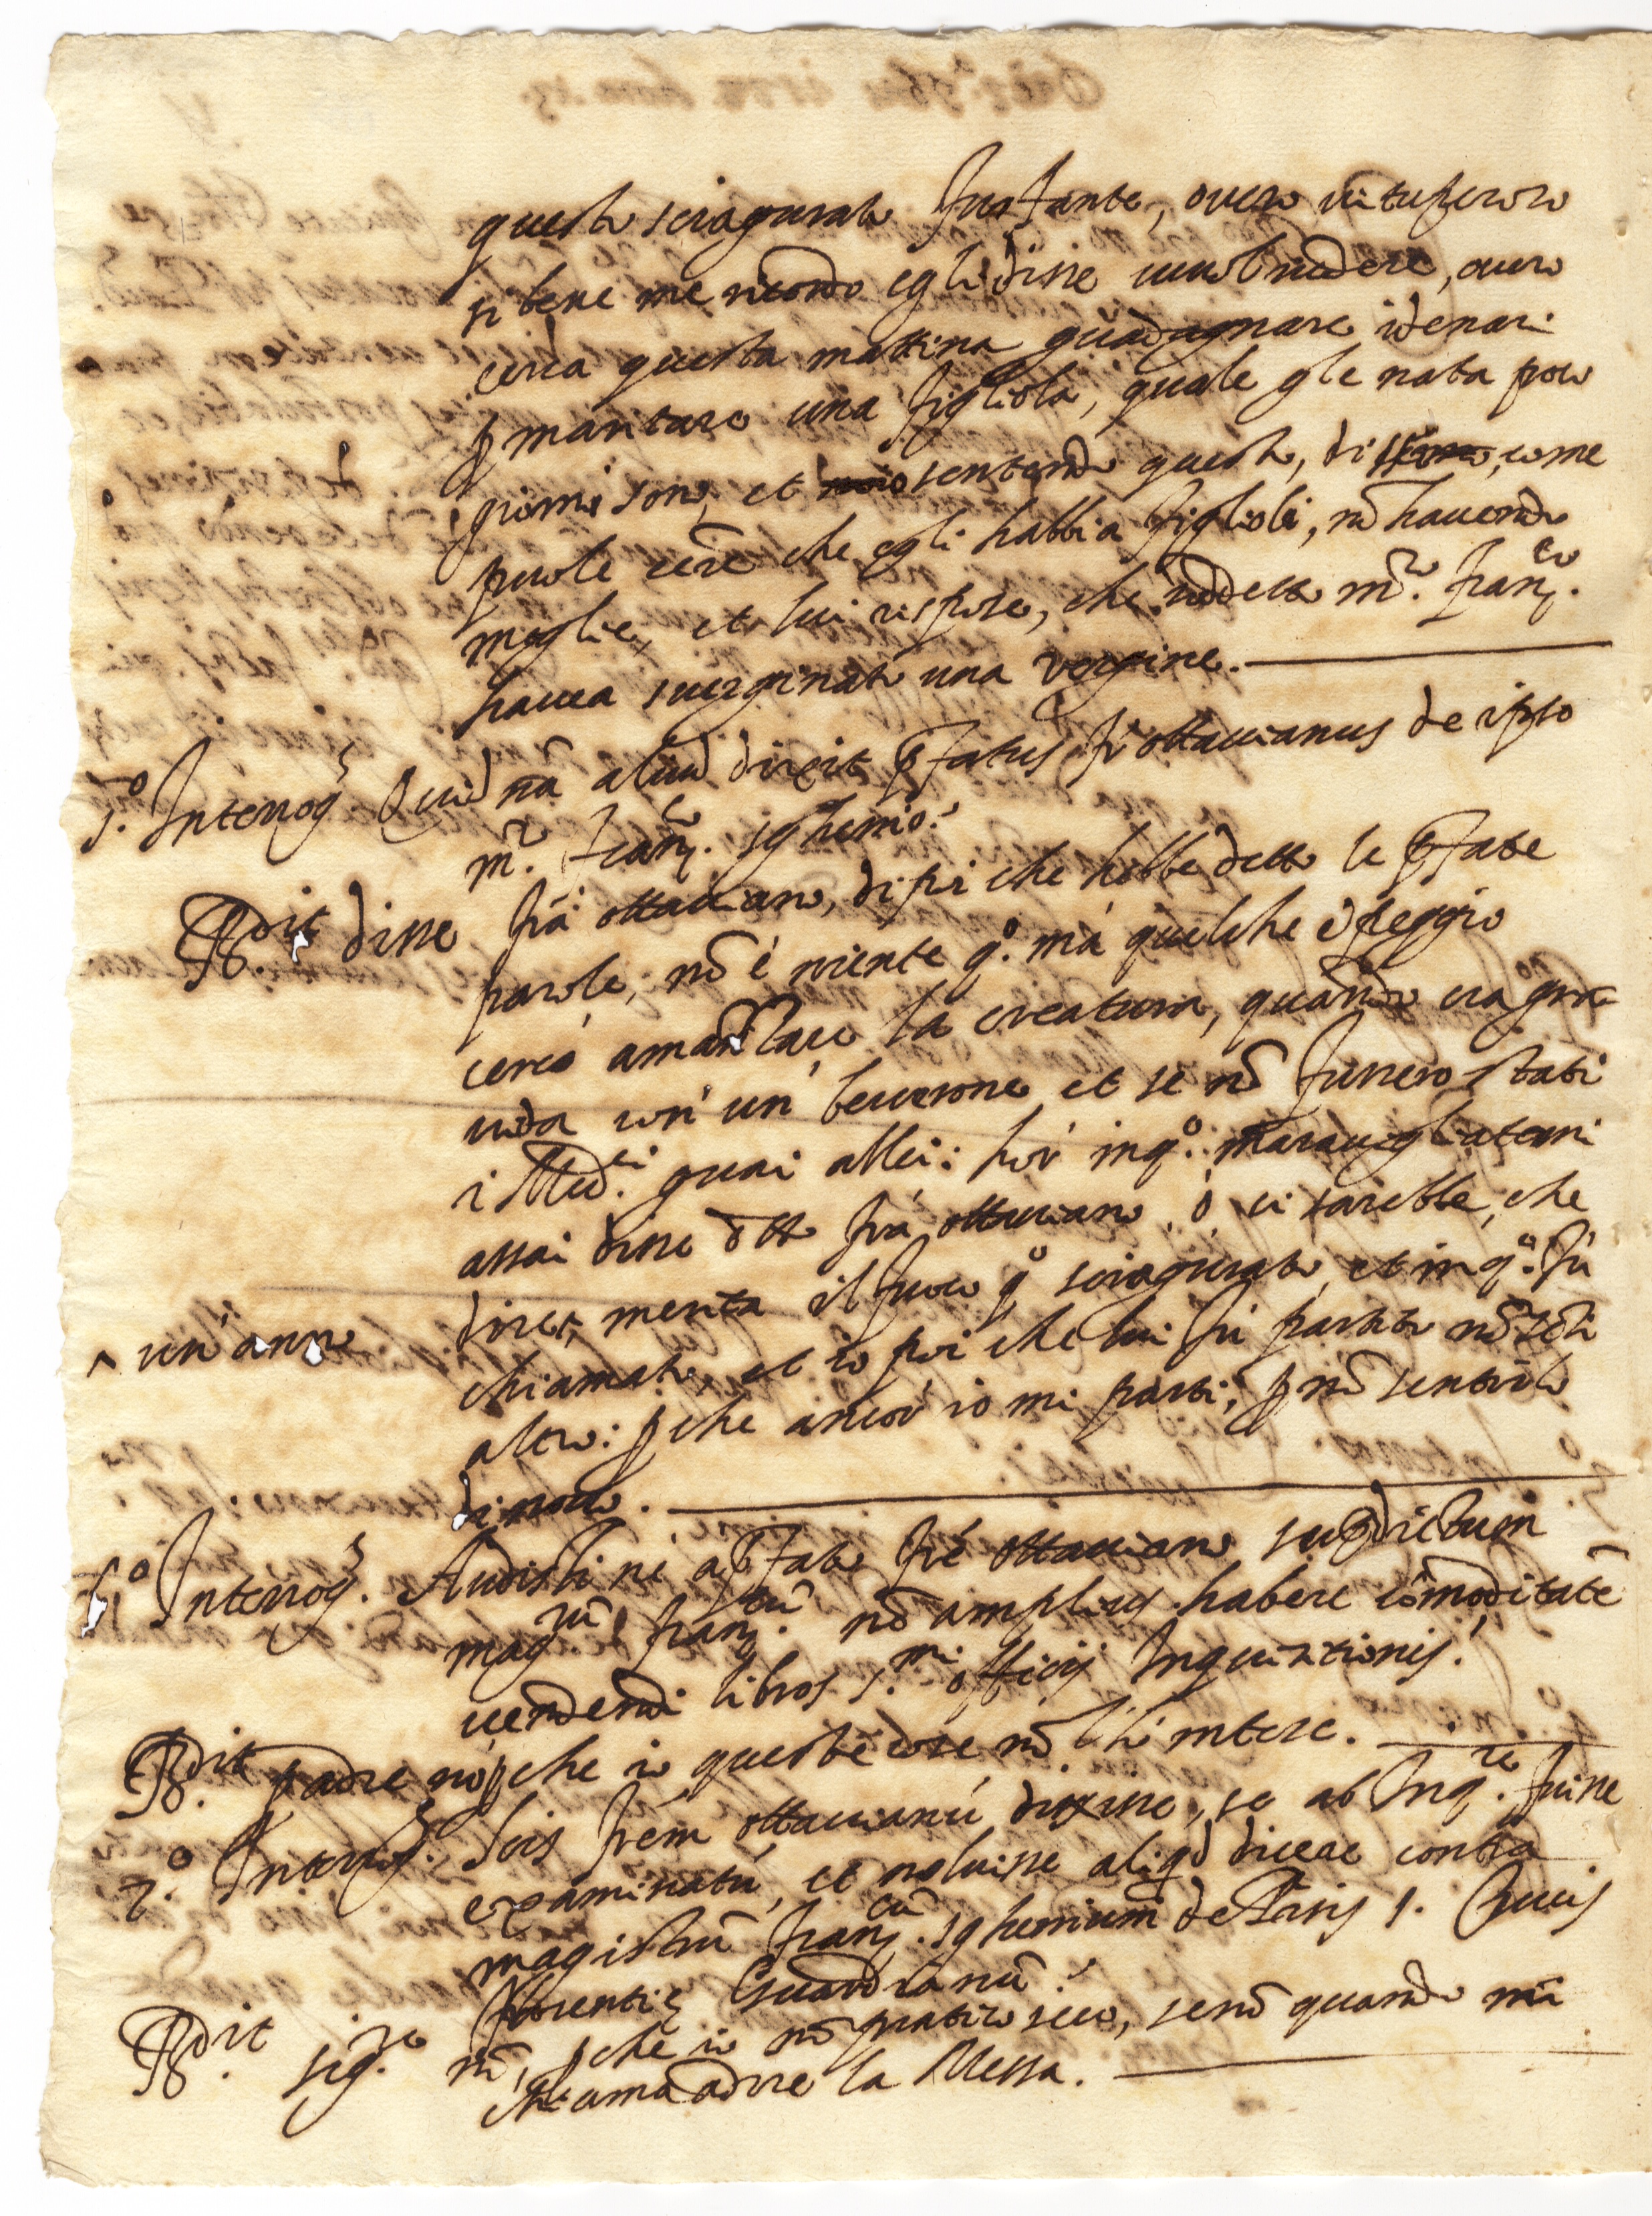 questo sciagurato furfante, overo vituperoso
si bene me ricordo egli disse vuol vedere, overo
cerca questa mattina guadagnare i denari
p mantare una figliola, quale gle nata pow
giorni sono, et sentendo questo, dissi, come
puole eēre che egli habbia figlioli, nō havendo
moglie, et lui rispose, che detto m.ro Franc.co
havea sverginato una vergine.
5.o Interrog.s Quid nā aliud dixit pfatus fr ottavianus de ipso
m.ro Franc.co sghemio?
R.dit disse frà ottaviano, di poi che hebbe detto le pfate
parole, nō è niente q.o mà quel che è peggio
cercò amantare la creatura, quando era gra
vida con un beverone et se nō fussero stati
i Med.ci guai allei: hor inq.o maravigliatomi
assai disse dtto frà ottaviano, ò ci sarebbe, che
dire, merita il fuoco q.o sciagurato, et inq.o fù
^ un' anno
chiamato, et io poi che lui fù partito nō sētì
altro: pche ancor io mi parti, p nō sentirlo
di novo.
6.o Interrog.s Audisti né a pfato fré ottaviano supdictum
mag.rū Franc.cū nō amplius habere cōmoditatē
vendendi libros s.mi officij Inquisitionis?
R.dit padre no pche io queste cose nō l'hò intese.
7.o Interrog.s Scis frem ottavianū dixisse, se ab Inq.re fuisse
examinatū, et noluisse aliqd dicere contra
magistrū Franc.cū sghemium de s. Crucis
florentie Guardianū?
R.dit sig.re nō, pche io nō pratico seco, senō quando mi
chiama a dire la Messa.